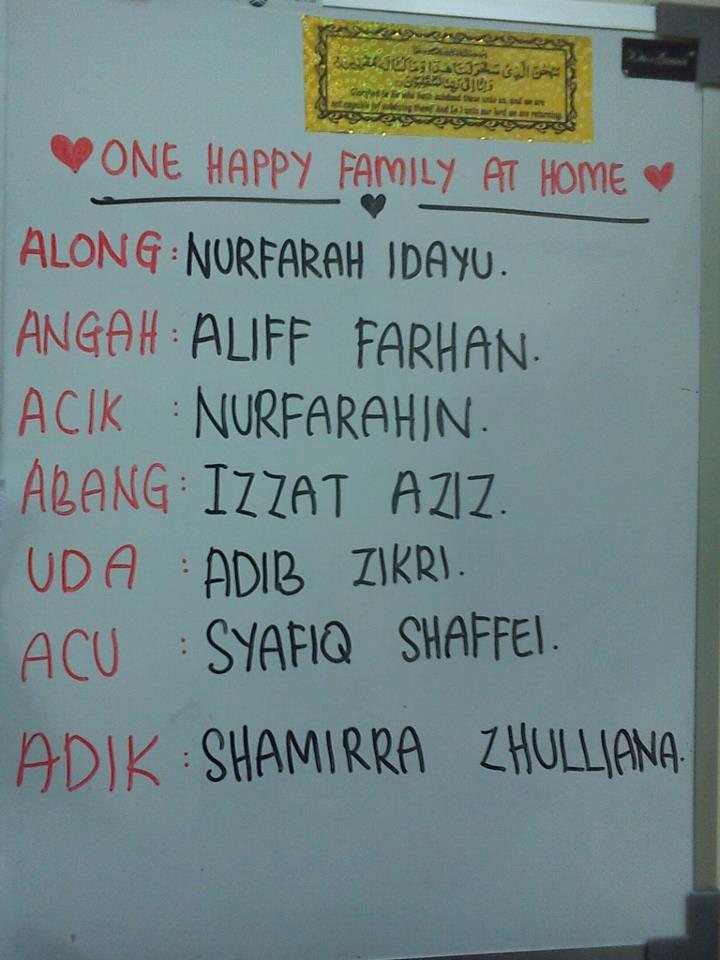 سُبْحٰنَ الَّذِيْ سَخَّرَ لَنَا هٰذَا وَمَا كُنَّا لَهُ مُقْرِنِيْنَ
وَاِنَّا اِلٰى رَبِّنَا لَمُنْقَلِبُوْنَ
Glorified be He who hath subdued these unto us, and we are
not capable (of subduing them) And Lo ! unto our lord we are returning.
♥ ONE HAPPY FAMILY AT HOME ♥
ALONG : NURFARAH IDAYU.
ANGAH : ALIFF FARHAN.
ACIK : NURFARAHIN.
ABANG : IZZAT AZIZ.
UDA : ADIB ZIKRI.
ACU : SYAFIQ SHAFFEI.
ADIK : SHAMIRRA ZHULLIANA.